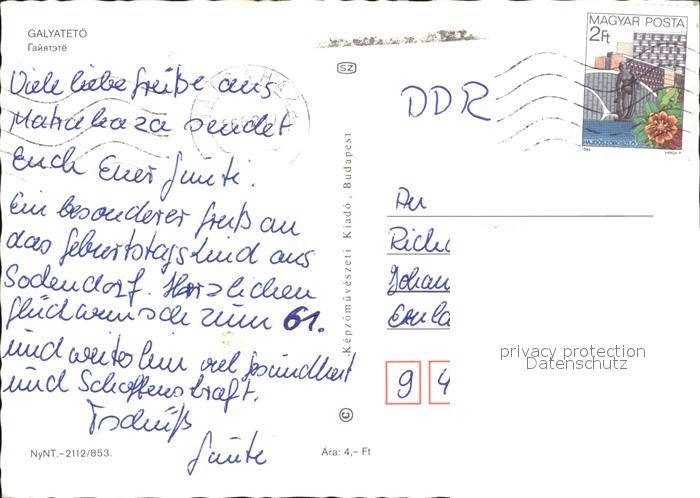 GALYATETŐ
Гайятэтё
Viele liebe Grüße aus
Matrahaza sendet
Euch Euer Günti.
Ein besonderer Gruß an
das Geburtstagskind aus
Sodendorf. Herzlichen
Glückwunsch zum 61.
und weiterhin viel Gesundheit
und Schaffenskraft.
Tschüß
Günte
NyNT.–2112/853.
Ára: 4,– Ft
SZ
Képzőművészeti Kiadó, Budapest
©
MAGYAR POSTA
2Ft
HAJDÚSZOBOSZLÓ
VARGA P.
DDR
An
Richa
Johan
9 4
privacy protection
Datenschutz